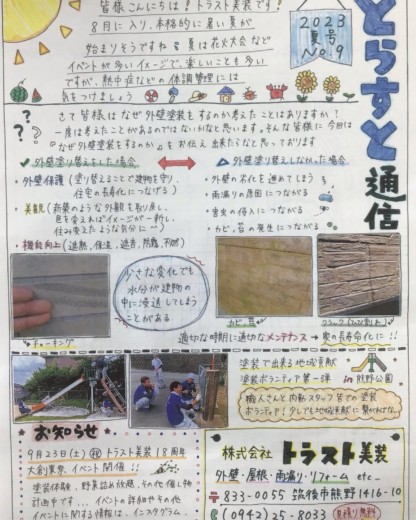 とらすと通信
2023
夏号
No.9
皆様こんにちは！トラスト美装です！
8月に入り、本格的に暑い夏が
始まりそうですね 夏は花火大会など
イベントが多いイメージで、楽しいことも多い
ですが、熱中症などの体調管理には
気をつけましょう
さて皆様はなぜ外壁塗装をするのか考えたことはありますか？
一度は考えたことがあるのではないかなと思います。そんな皆様に今回は
『なぜ外壁塗装をするのか』をお伝え出来たらなと思っております
✓外壁塗り替えをした場合
・外壁保護（塗り替えることで建物を守り、
住宅の長寿化につなげる）
・美観（新築のような外観を取り戻し、
色を変えればイメージが一新し、
住み変えたような気分に）
・機能向上（遮熱、保温、遮音、防露、不燃）
△外壁塗り替えしなかった場合
・外壁の劣化を進めてしまう
・雨漏りの原因につながる
・害虫の侵入につながる
・カビ、苔の発生につながる
少さな変化でも
水分が建物の
中に浸透してしまう
ことがある
チョーキング
カビ、苔
クラック（ひび割れ）
適切な時期に適切なメンテナンス→家の長寿命化に！！
塗装で出来る地域貢献
塗装ボランティア第一弾 in 熊野公園
職人さんと内勤スタッフ皆での塗装
ボランティア！少しでも地域貢献に繋がれば
お知らせ
9月23日(土)㊗トラスト美装18周年
大創業祭、イベント開催！！
塗装体験、野菜詰め放題、その他催し物
計画中です... イベントの詳細やその他
イベントに関する情報は、インスタグラム、
株式会社トラスト美装
外壁・屋根・雨漏り・リフォーム etc...
〒833-0055 筑後市熊野1416-10
(0942)25-8033
見積り無料